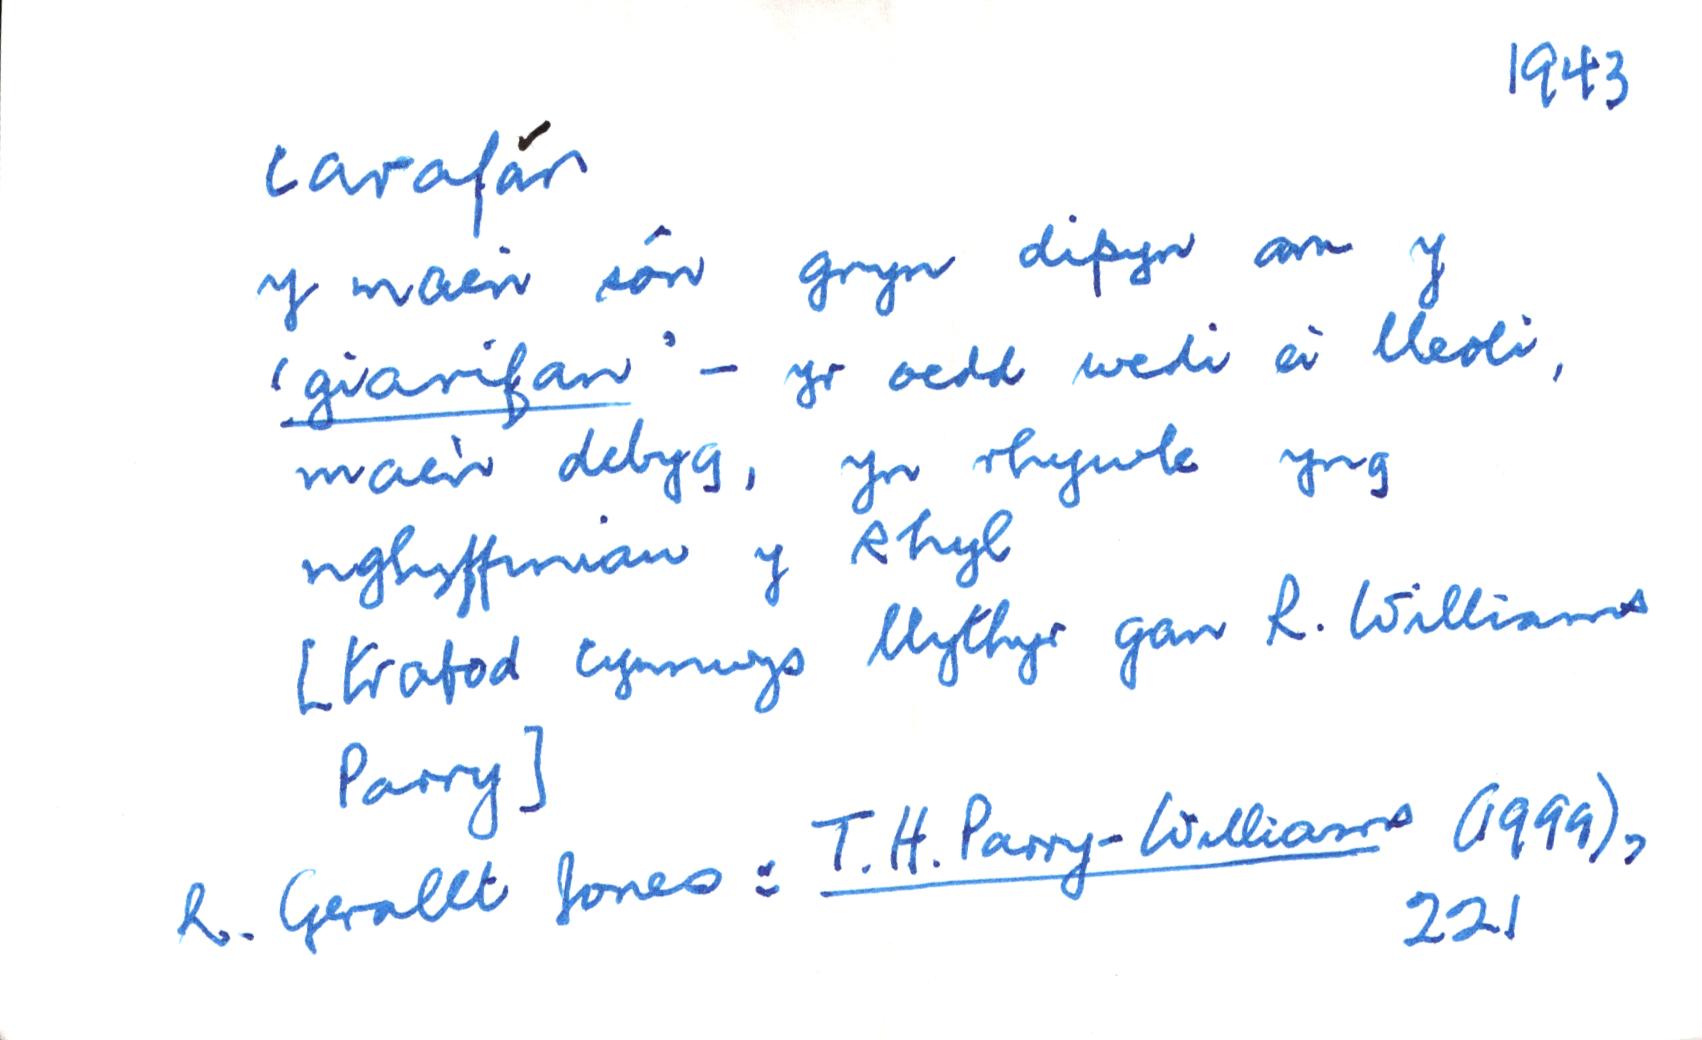 1943
carafán
y mae'n sôn gryn dipyn am y
'giarifan' – yr oedd wedi ei lleoli,
mae'n debyg, yn rhywle yng
nghyffiniau y Rhyl
[trafod cynnwys llythyr gan R. Williams
Parry]
R. Gerallt Jones: T.H. Parry-Williams (1999),
221